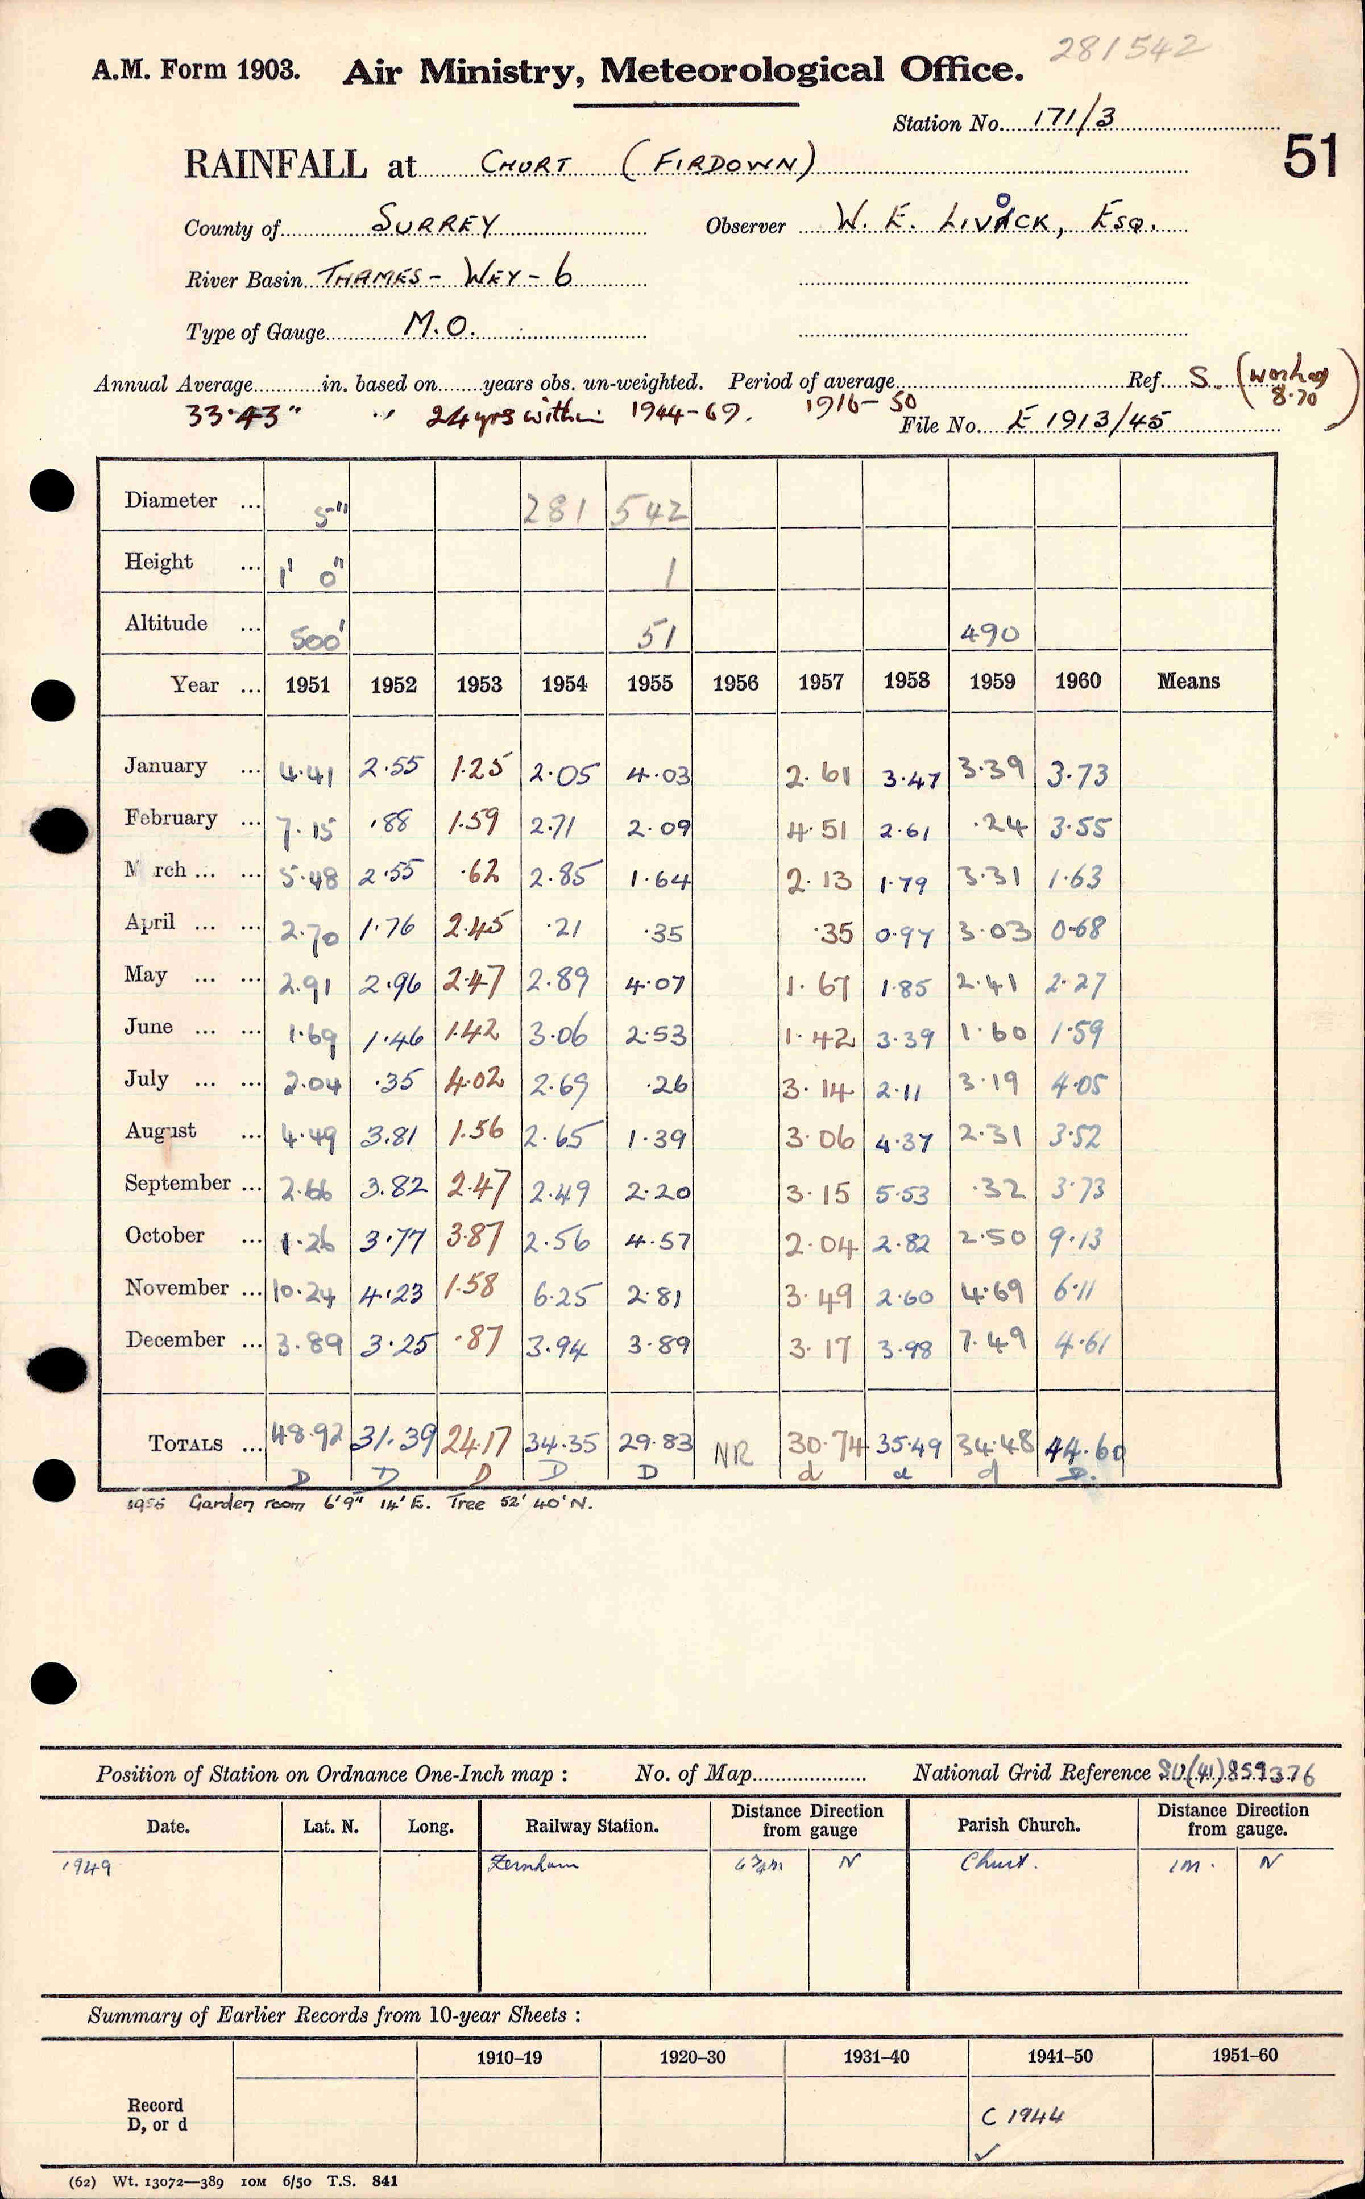 281542
A.M. Form 1903. Air Ministry, Meteorological Office.
Station No. 171/3
51
RAINFALL at CHURT (FIRDOWN)
County of SURREY Observer W. E. LIVOCK, ESQ.
River Basin THAMES - WEY - 6
Type of Gauge M.O.
Annual Average in. based on years obs. un-weighted. Period of average Ref. S. (working 8.70)
33.43" " 24 yrs within 1944-69. 1916-50
File No. E 1913/45
Diameter ... 5" 281 542
Height ... 1' 0" 1
Altitude ... 500' 51 490
Year ... 1951 1952 1953 1954 1955 1956 1957 1958 1959 1960 Means
January ... 4.41 2.55 1.25 2.05 4.03 2.61 3.47 3.39 3.73
February ... 7.15 .88 1.59 2.71 2.09 4.51 2.61 .24 3.55
M rch ... ... 5.48 2.55 .62 2.85 1.64 2.13 1.79 3.31 1.63
April ... ... 2.70 1.76 2.45 .21 .35 .35 0.97 3.03 0.68
May ... ... 2.91 2.96 2.47 2.89 4.07 1.67 1.85 2.41 2.27
June ... ... 1.69 1.46 1.42 3.06 2.53 1.42 3.39 1.60 1.59
July ... ... 2.04 .35 4.02 2.69 .26 3.14 2.11 3.19 4.05
August ... 4.49 3.81 1.56 2.65 1.39 3.06 4.37 2.31 3.52
September ... 2.66 3.82 2.47 2.49 2.20 3.15 5.53 .32 3.73
October ... 1.26 3.77 3.87 2.56 4.57 2.04 2.82 2.50 9.13
November ... 10.24 4.23 1.58 6.25 2.81 3.49 2.60 4.69 6.11
December ... 3.89 3.25 .87 3.94 3.89 3.17 3.98 7.49 4.61
TOTALS ... 48.92 31.39 24.17 34.35 29.83 NR 30.74 35.49 34.48 44.60
D D D D D d d d D.
1955 Garden room 6'9" 14' E. Tree 52' 40' N.
Position of Station on Ordnance One-Inch map : No. of Map National Grid Reference SU(41)859376
Date. Lat. N. Long. Railway Station. Distance Direction from gauge Parish Church. Distance Direction from gauge.
1949 Farnham 6¾m N Churt. 1m. N
Summary of Earlier Records from 10-year Sheets :
1910–19 1920–30 1931–40 1941–50 1951–60
Record
D, or d
C 1944
✓
(62) Wt. 13072—389 10M 6/50 T.S. 841